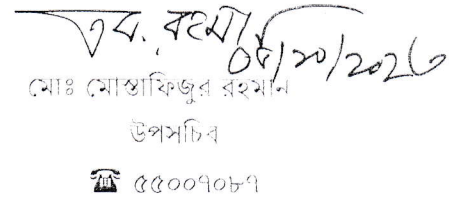 রহমা
০৫/১০/২০২৩
মোঃ মোস্তাফিজুর রহমান
উপসচিব
☎ ৫৫০০৭০৮৭